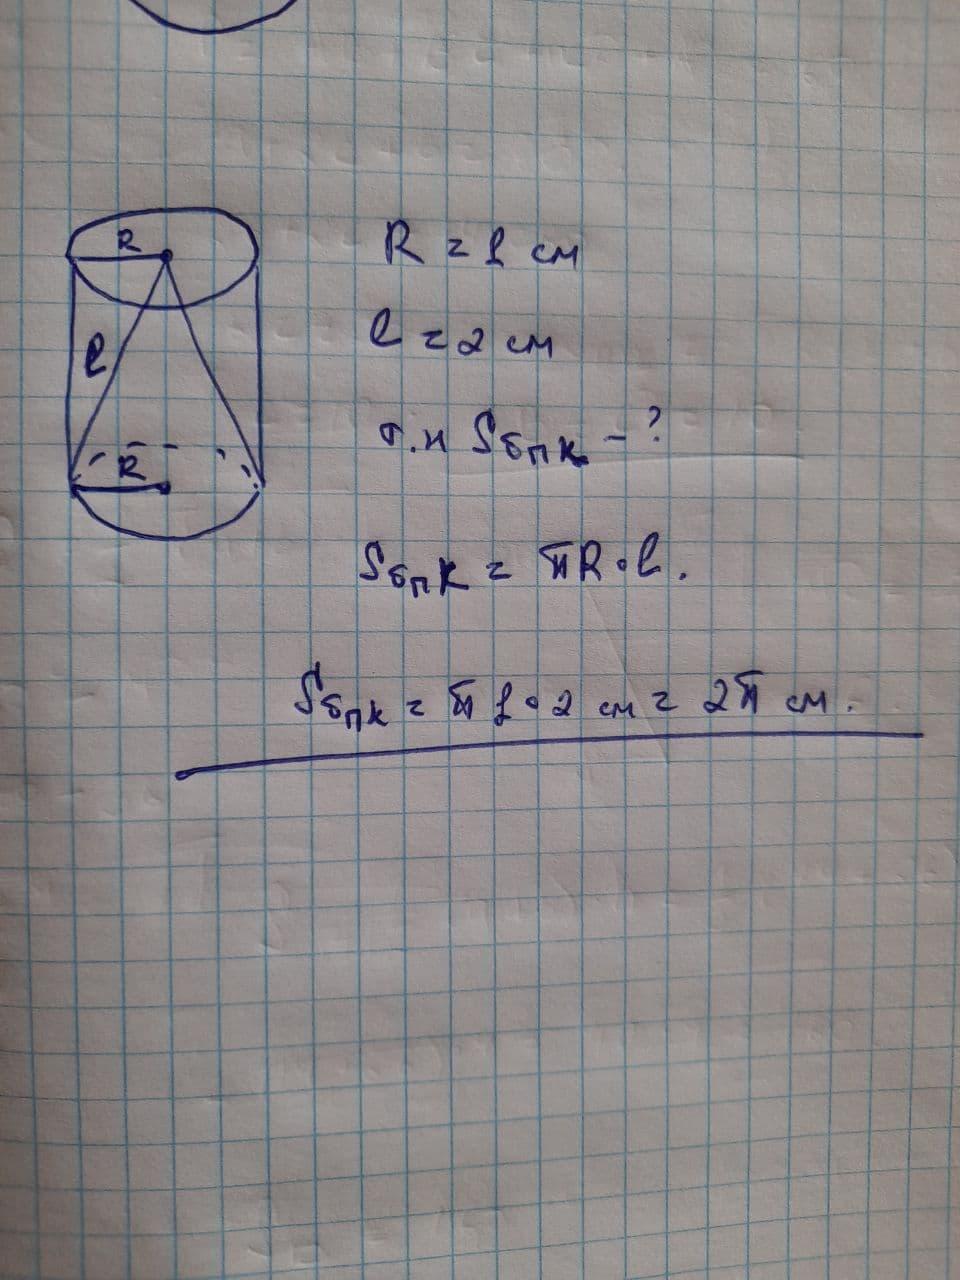 R
R = 1 см
l
l = 2 см
R
т.н Sбпк - ?
Sбпк = πR·l.
Sбпк = π 1·2 см = 2π см.